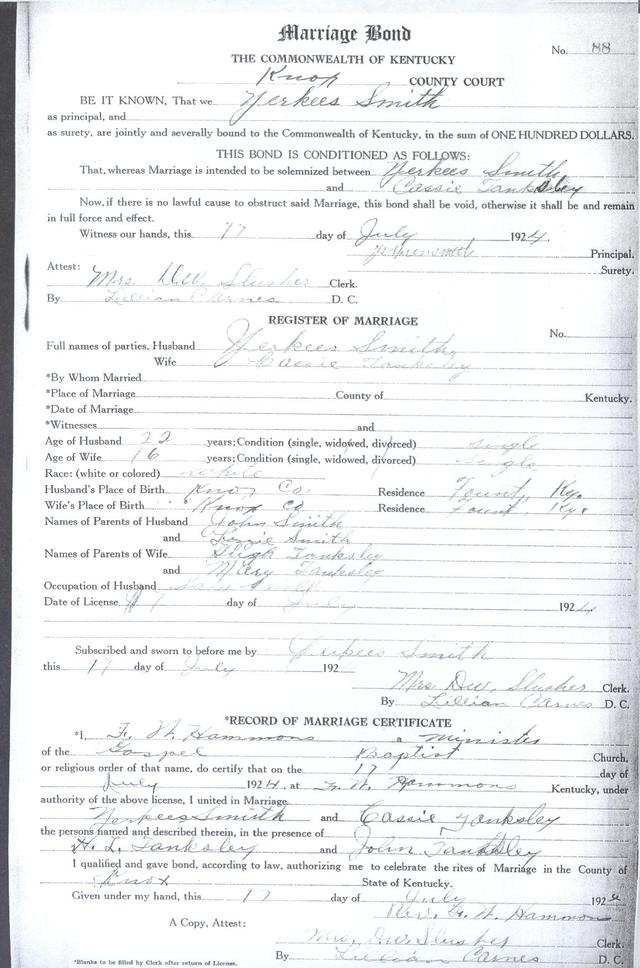 Marriage Bond
No. 88
THE COMMONWEALTH OF KENTUCKY
Knox COUNTY COURT
BE IT KNOWN, That we Yerkees Smith
as principal, and
as surety, are jointly and severally bound to the Commonwealth of Kentucky, in the sum of ONE HUNDRED DOLLARS.
THIS BOND IS CONDITIONED AS FOLLOWS:
That, whereas Marriage is intended to be solemnized between Yerkees Smith
and Cassie Tanksley
Now, if there is no lawful cause to obstruct said Marriage, this bond shall be void, otherwise it shall be and remain
in full force and effect.
Witness our hands, this 17 day of July 1924.
Principal.
Surety.
Attest:
Mrs. D.W. Slusher Clerk.
By Lillian Carnes D. C.
REGISTER OF MARRIAGE
No.
Full names of parties, Husband Yerkees Smith
Wife Cassie Tanksley
*By Whom Married
*Place of Marriage County of Kentucky.
*Date of Marriage
*Witnesses and
Age of Husband 22 years; Condition (single, widowed, divorced) single
Age of Wife 16 years; Condition (single, widowed, divorced) single
Race: (white or colored) white
Husband's Place of Birth Knox Co. Residence Fount, Ky.
Wife's Place of Birth Knox Co Residence Fount, Ky.
Names of Parents of Husband John Smith
and Lizzie Smith
Names of Parents of Wife Hugh Tanksley
and Mary Tanksley
Occupation of Husband
Date of License 17 day of July 1924
Subscribed and sworn to before me by Yerkees Smith
this 17 day of July 192
Mrs. D.W. Slusher Clerk.
By Lillian Carnes D. C.
*RECORD OF MARRIAGE CERTIFICATE
*I, F. W. Hammons a Minister
of the Gospel Baptist Church,
or religious order of that name, do certify that on the 17 day of
July 1924, at F. W. Hammons Kentucky, under
authority of the above license, I united in Marriage
Yerkees Smith and Cassie Tanksley
the persons named and described therein, in the presence of
H. L. Tanksley and John Tanksley
I qualified and gave bond, according to law, authorizing me to celebrate the rites of Marriage in the County of
Knox State of Kentucky.
Given under my hand, this 17 day of July 192
Rev. F. W. Hammons
A Copy, Attest:
Mrs. D.W. Slusher Clerk.
*Blanks to be filled by Clerk after return of License.
By Lillian Carnes D. C.